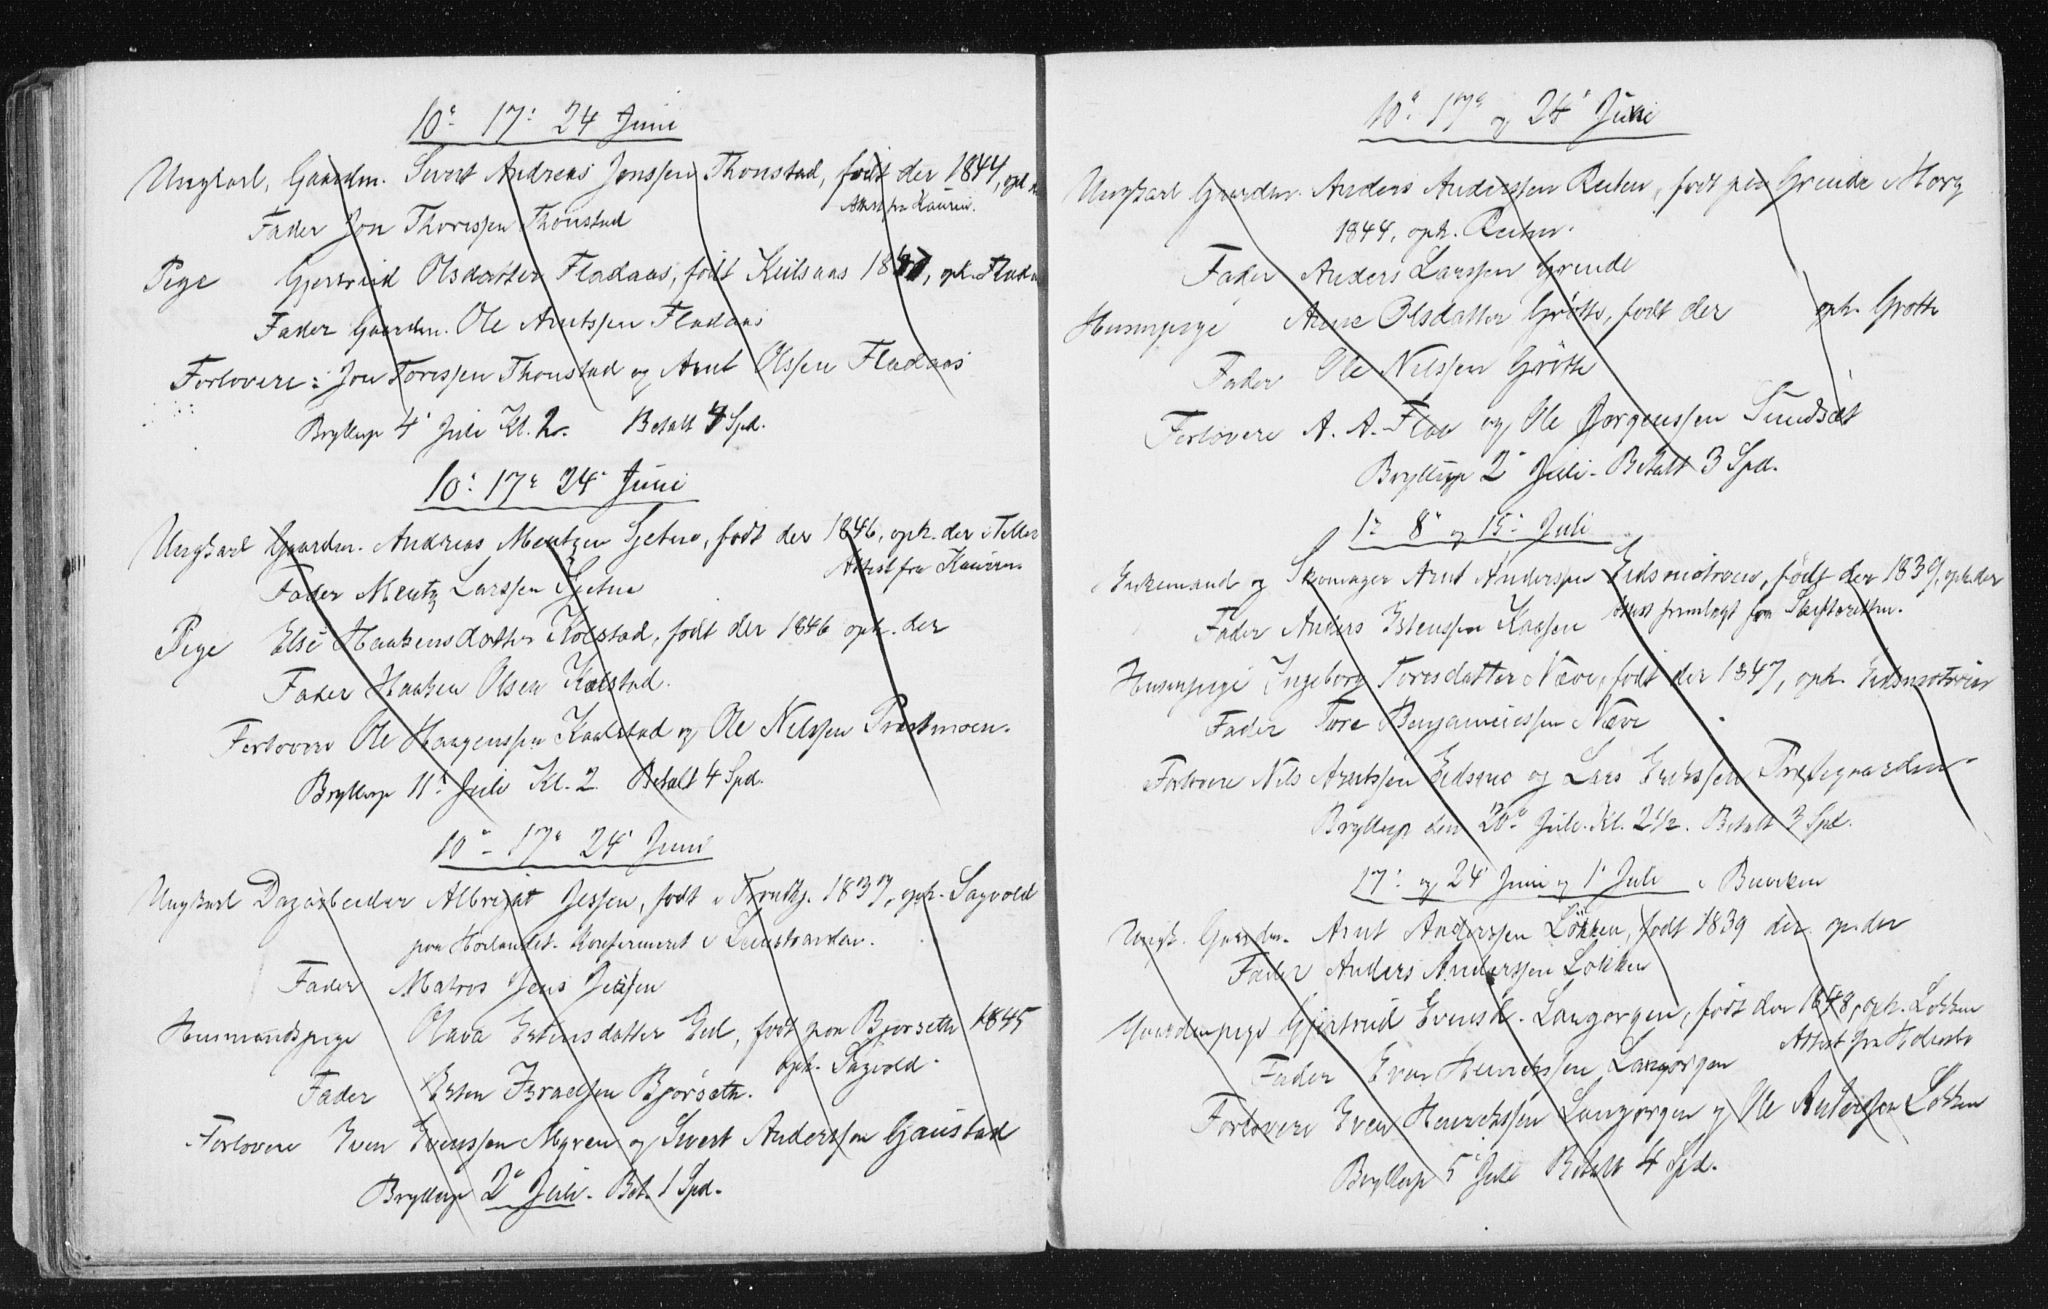 10de 17de 24 Juni
Ungkarl, Gaardm. Sivert Andreas Jonssen Thonstad, født der 1844, opk
Attest fra Kaurin.
Fader Jon Thoressen Thonstad
Pige Gjertruid Olsdatter Fladaas, født Kulsaas opk. Flada
Fader Gaardm. Ole Arntssen Fladaas
Forlovere: Jon Toressen Thonstad og Arnt Olssen Fladaas
Bryllup 4de Juli Kl. 2. Betalt 4 Spd.
10de 17de 24de Juni
Ungkarl Gaardm. Andreas Mentzen Sjetne, født der 1846, opk. der i Tiller
Attest fra Kaurin.
Fader Mentz Larssen Sjetne
Pige Else Haakensdatter Kolstad, født der 1846 opk. der
Fader Haaken Olsen Kolstad.
Forlovere Ole Haagenssen Kaalstad og Ole Nilssen Præstmoen.
Bryllup 11te Juli Kl. 2 Betalt 4 Spd.
10de 17de 24de Juni
Ungkarl Dagarbeider Albrigt Jessen, født i Trondhj. 1837, opk. Sagvold
paa Horlandet. Konfirmeret i
Fader Matros Jens Jessen
Husmandspige Olava Estensdatter Eid, født paa Bjørseth 1845
opk. Sagvold.
Fader Esten Israelsen Bjørseth.
Forlovere Even Evenssen Myren og Sivert Anderssen Gaustad
Bryllup 2de Juli. Bet. 1 Spd.
10de 17de og 24de Juni
Ungkarl Gaardm. Anders Anderssen Reiten, født paa Grinde i Horg
1844, opk. Reiten.
Fader Anders Larssen Grinde
Husmpige Anne Olsdatter Grøtte, født der opk. Grøtte
Fader Ole Nilssen Grøtte
Forlovere A. A. Flaa og Ole Jørgenssen Sundsæt
Bryllup 2de Juli. Betalt 3 Spd.
1ste 8de og 15de Juli
Enkemand og Skomager Arnt Anderssen Eidsmotrøen, født der 1839, opk. der
Attest fremlagt fra Skifteretten.
Fader Anders Estenssen Kaasen
Husmpige Ingeborg Toresdatter Næve, født der 1847, opk. Eidsmotrøen
Fader Tore Benjaminssen Næve
Forlovere Nils Arntssen Eidsmo og Lars Erikssen Præstegaarden.
Bryllup den 20de Juli. Kl. 2 1/2. Betalt 3 Spd.
17de og 24de Juni og 1ste Juli i Buviken
Ungk. Gaardm. Arnt Anderssen Løkken, født 1839 der op. der
Fader Anders Anderssen Løkken
Gaardmpige Gjertrud Evensd. Langørgen, født der 1848, opk. Løkken
Attest fra
Fader Even Henrikssen Langørgen
Forlovere Even Henrikssen Langørgen og Ole Anderssen Løkken
Bryllup 5te Juli Betalt 4 Spd.